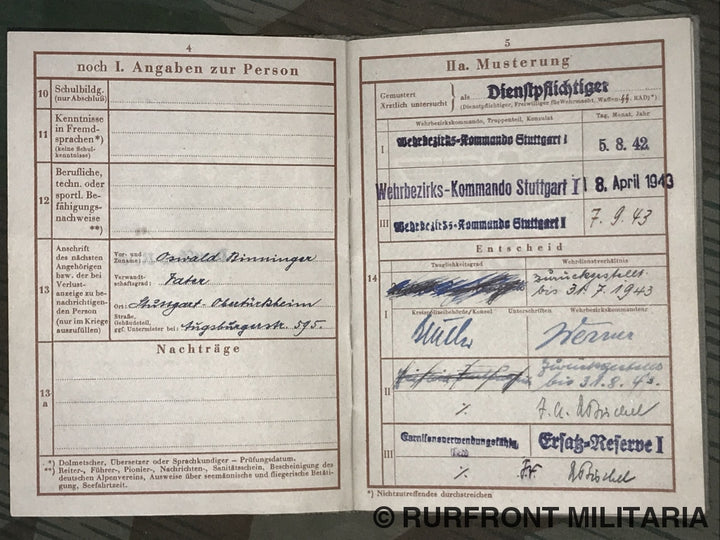 4
noch I. Angaben zur Person
10
Schulbildg.
(nur Abschluß)
11
Kenntnisse
in Fremd-
sprachen*)
(keine Schul-
kenntnisse)
12
Berufliche,
techn. oder
sportl. Be-
fähigungs-
nachweise
**)
13
Anschrift
des nächsten
Angehörigen
bzw. der bei
Verlust-
anzeige zu be-
nachrichtigen-
den Person
(nur im Kriege
auszufüllen)
Vor- und
Zuname: Oswald Binninger
Verwandt-
schaftsgrad: Vater
Ort: Stuttgart-Obertürkheim
Straße,
Gebäudeteil,
ggf. Untermieter bei: Augsburgerstr. 595.
Nachträge
13
a
*) Dolmetscher, Übersetzer oder Sprachkundiger – Prüfungsdatum.
**) Reiter-, Führer-, Pionier-, Nachrichten-, Sanitätsschein, Bescheinigung des
deutschen Alpenvereins, Ausweise über seemännische und fliegerische Betäti-
gung, Seefahrtzeit.
5
IIa. Musterung
Gemustert
Ärztlich untersucht
als Dienstpflichtiger
(Dienstpflichtiger, Freiwilliger für Wehrmacht, Waffen-SS, RAD)*)
Wehrbezirkskommando, Truppenteil, Konsulat
Tag, Monat, Jahr
I
Wehrbezirks-Kommando Stuttgart I
5. 8. 42
Wehrbezirks-Kommando Stuttgart I
8. April 1943
III
Wehrbezirks-Kommando Stuttgart I
7. 9. 43
Entscheid
14
Tauglichkeitsgrad
Wehrdienstverhältnis
zurückgestellt
bis 31.7.1943
I
Kreispolizeibehörde/Konsul
Unterschriften
Wehrbezirkskommandeur
Werner
II
zurückgestellt
bis 31.8.43.
III
Garnisonverwendungsfähig
Feld
Ersatz-Reserve I
*) Nichtzutreffendes durchstreichen
© RURFRONT MILITARIA